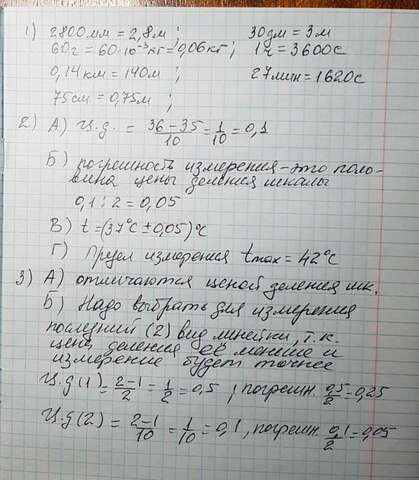 1) 2800мм = 2,8м ; 30дм = 3м
60г = 60·10⁻³кг = 0,06кг ; 1ч = 3600с
0,14км = 140м ; 27мин = 1620с
75см = 0,75м ;
2) А) ц.д. = 36-35/10 = 1/10 = 0,1
Б) погрешность измерения - это поло-
вина цены деления шкалы
0,1 : 2 = 0,05
В) t = (37°C ± 0,05)°C
Г) Предел измерения tmax = 42°C
3) А) отличаются ценой деления шк.
Б) Надо выбрать для измерения
последний (2) вид линейки, т.к.
цена деления её меньше и
измерение будет точнее
Ц.д(1) = 2-1/2 = 1/2 = 0,5 ; погрешн. 0,5/2 = 0,25
Ц.д(2) = 2-1/10 = 1/10 = 0,1, погрешн. 0,1/2 = 0,05